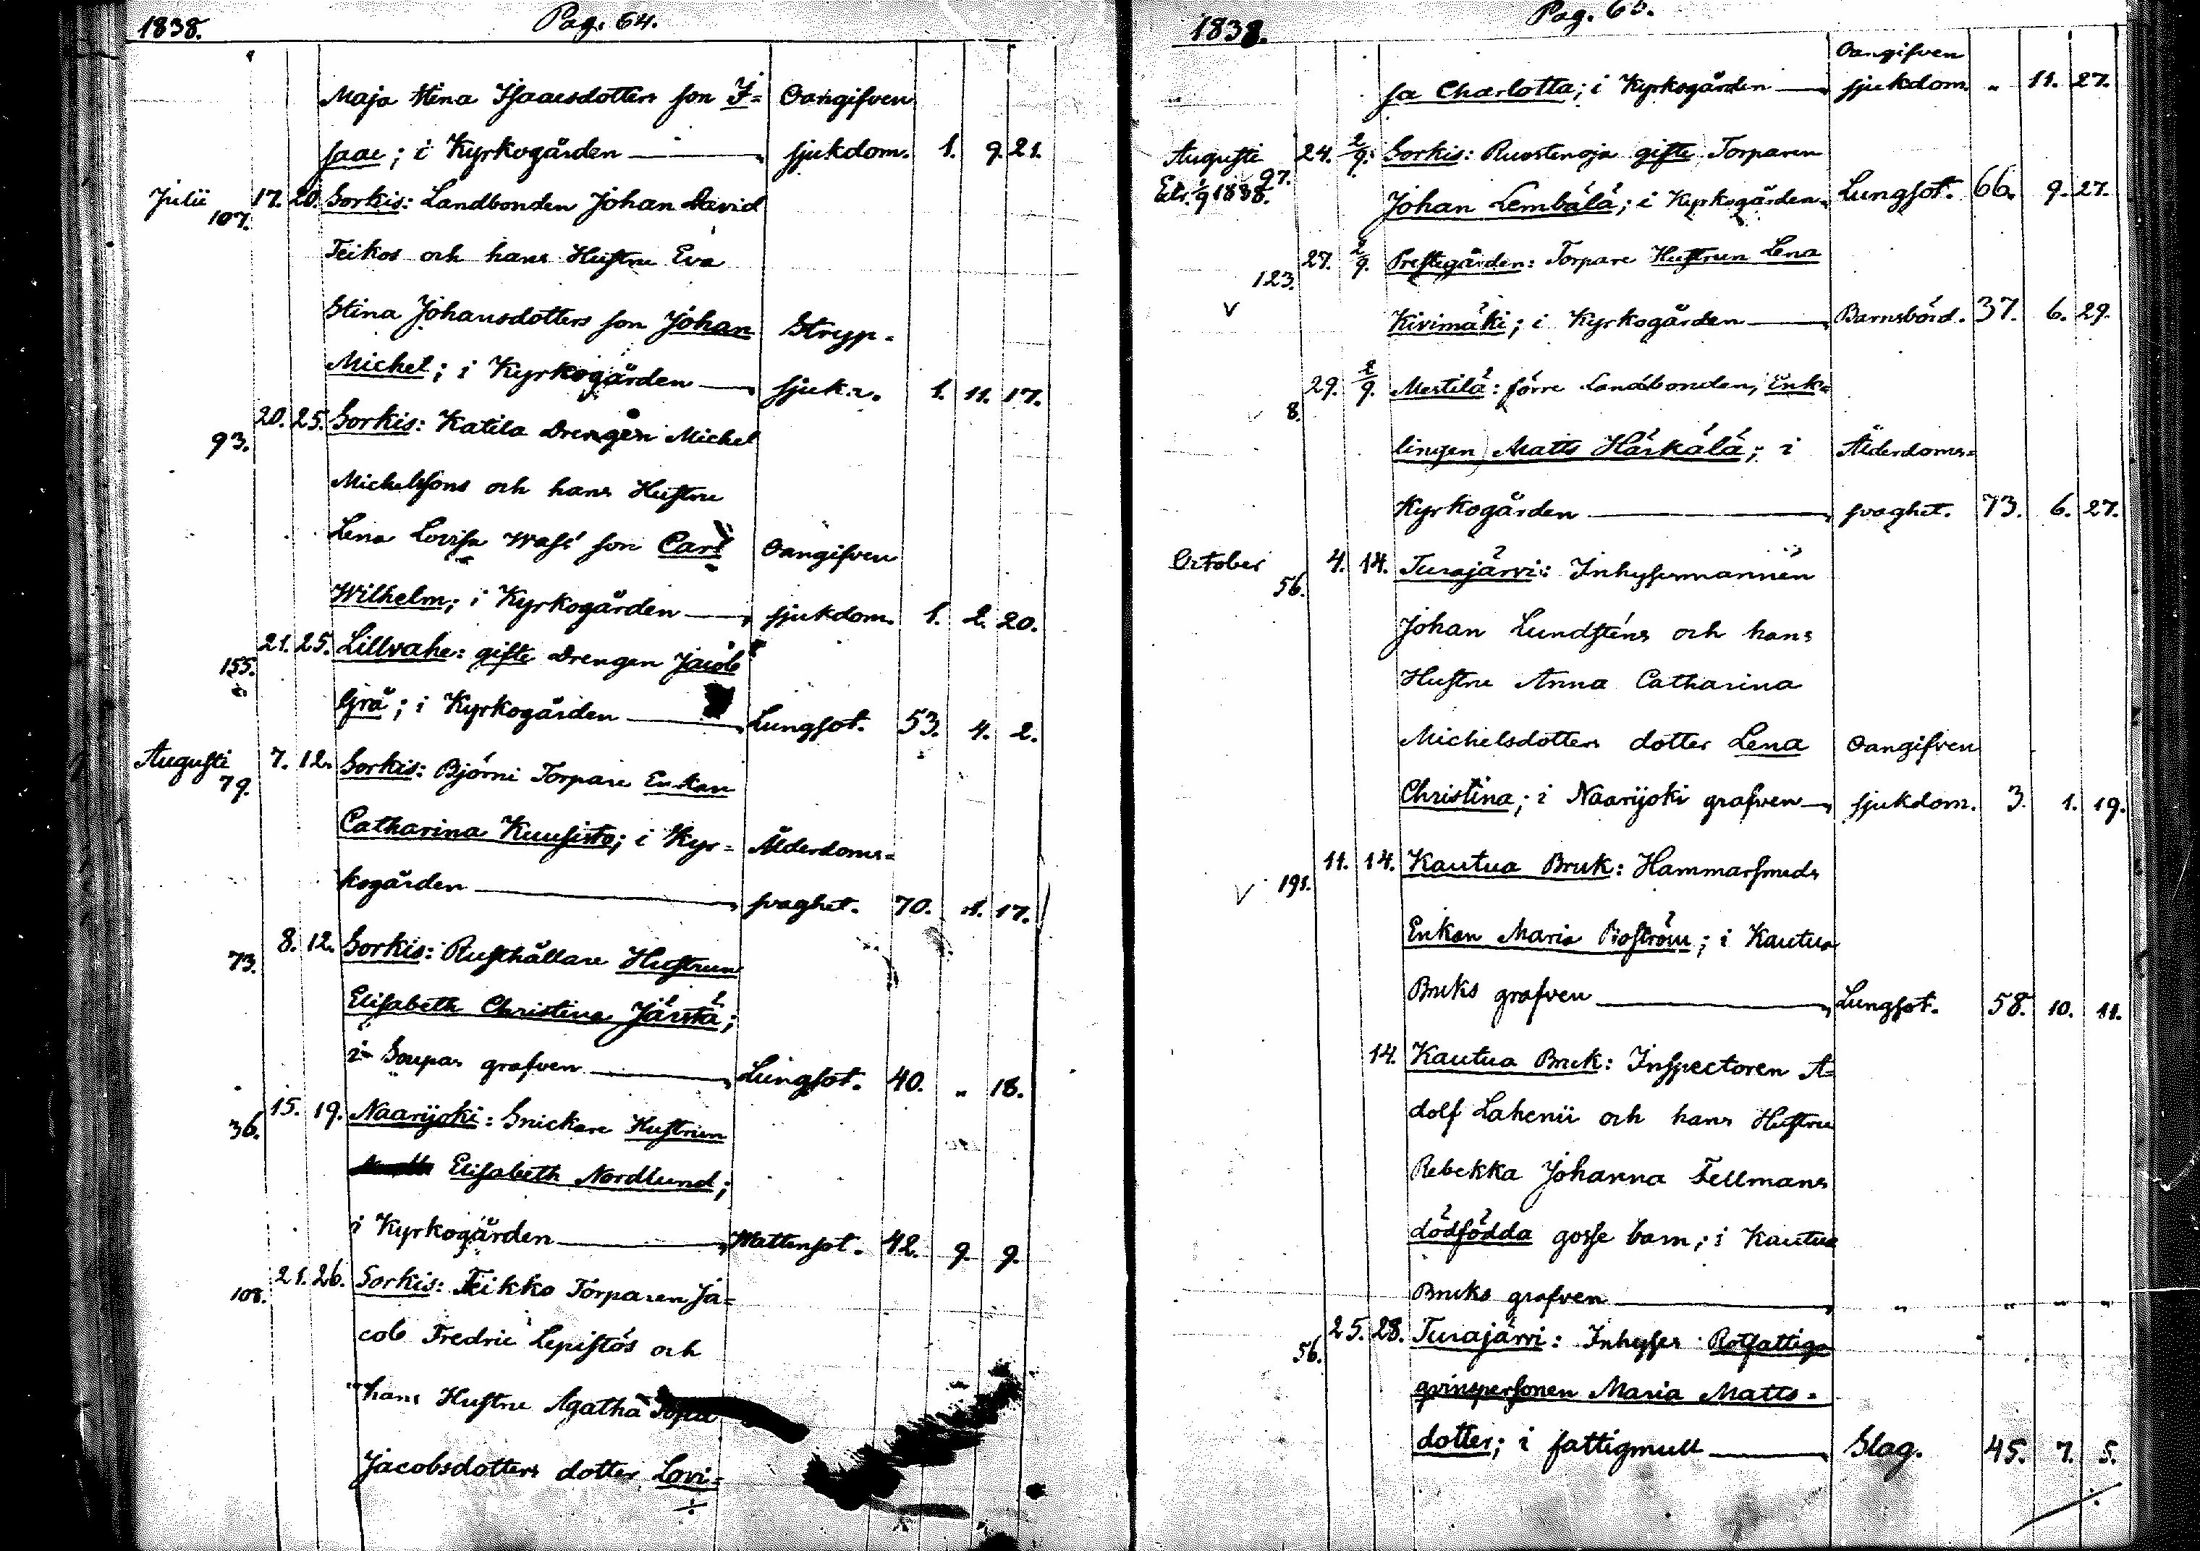 1838. Pag. 64.
Maja Stina Isaacsdotters son I= Oangifven
saac; i Kyrkogården — sjukdom. 1. 9. 21.
Julii 107. 17. 20. Sorkis: Landbonden Johan David
Teikos och hans Hustru Eva
Stina Johansdotters son Johan Stryp-
Michel; i Kyrkogården — sjuk:a. 1. 11. 17.
93. 20. 25. Sorkis: Katila Drengen Michel
Michelssons och hans Hustru
Lena Lovisa son Carl Oangifven
Wilhelm; i Kyrkogården — sjukdom. 1. 2. 20.
155. 21. 25. Lillvahe: gifte Drengen Jacob
Grå; i Kyrkogården — Lungsot. 53. 4. 2.
Augusti 79. 7. 12. Sorkis: Björni Torpare Enkan
Catharina Kuusisto; i Kyr= Ålderdoms=
kogården — svaghet. 70. 17.
73. 8. 12. Sorkis: Rusthållare Hustrun
Elisabeth Christina Järstä;
i grafven — Lungsot. 40. „ 18.
36. 15. 19. Naarijoki: Snickare Hustrun
Elisabeth Nordlund;
i Kyrkogården — Wattensot. 42. 9. 9.
108. 21. 26. Sorkis: Teikko Torparen Ja=
cob Fredric Lepistös och
hans Hustru Agatha
Jacobsdotters dotter Lovi=
1838. Pag. 65.
Oangifven
sa Charlotta; i Kyrkogården — sjukdom. „ 11. 27.
Augusti 24. 2/9. Sorkis: Ruostenoja gifte Torparen
97. 1838. Johan Lembälä; i Kyrkogården. Lungsot. 66. 9. 27.
123. 27. 2/9. Prestegården: Torpare Hustrun Lena
Kivimäki; i Kyrkogården — Barnsbörd. 37. 6. 29.
8. 29. 2/9. Mestilä: förre Landbonden, Enk=
lingen Matts Härkälä; i Ålderdoms=
Kyrkogården — svaghet. 73. 6. 27.
October 56. 4. 14. Turajärvi: Inhysesmannen
Johan Lundsténs och hans
Hustru Anna Catharina
Michelsdotters dotter Lena Oangifven
Christina; i Naarijoki grafven — sjukdom. 3. 1. 19.
191. 11. 14. Kautua Bruk: Hammarsmeds
Enkan Maria Boström; i Kautua
Bruks grafven — Lungsot. 58. 10. 11.
14. Kautua Bruk: Inspectoren A=
dolf Lahenii och hans Hustru
Rebekka Johanna Fellmans
dödfödda gosse barn; i Kautua
Bruks grafven — „ „ „ „
56. 25. 28. Turajärvi: Inhyses Rotfattiga
qvinspersonen Maria Matts=
dotter; i fattigmull — Slag. 45. 7. 5.